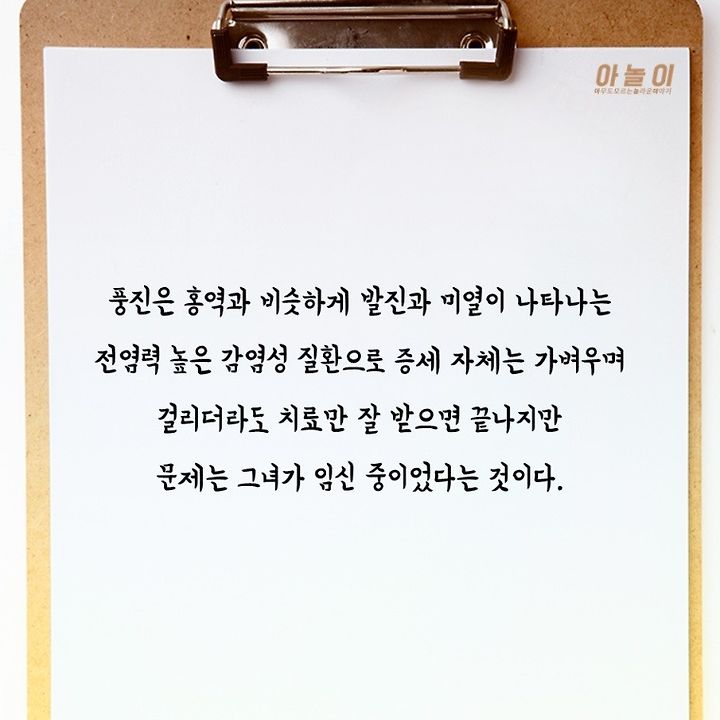 아놀이
아무도모르는놀라운이야기
풍진은 홍역과 비슷하게 발진과 미열이 나타나는
전염력 높은 감염성 질환으로 증세 자체는 가벼우며
걸리더라도 치료만 잘 받으면 끝나지만
문제는 그녀가 임신 중이었다는 것이다.